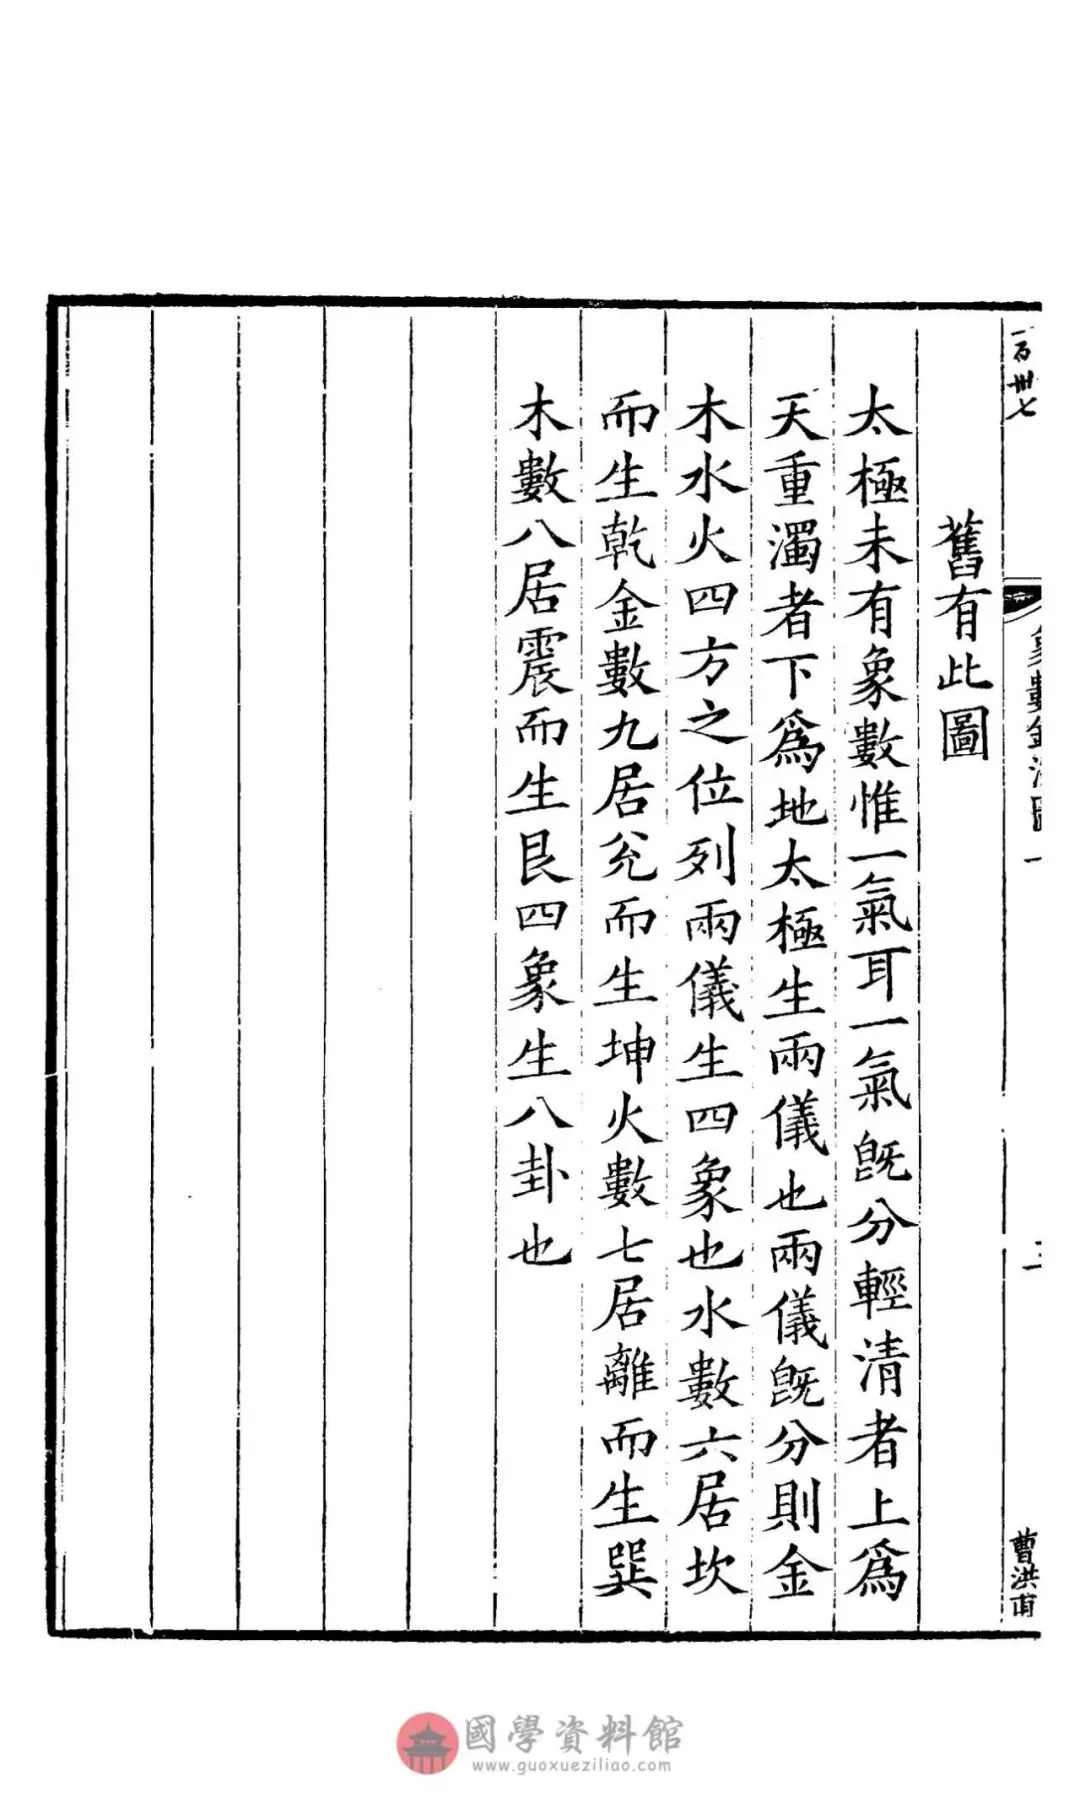 一百卌七
象數鉤深圖一
二
曹洪甫
舊有此圖
太極未有象數惟一氣耳一氣旣分輕清者上爲
天重濁者下爲地太極生兩儀也兩儀旣分則金
木水火四方之位列兩儀生四象也水數六居坎
而生乾金數九居兊而生坤火數七居離而生巽
木數八居震而生艮四象生八卦也
國學資料館
www.guoxueziliao.com